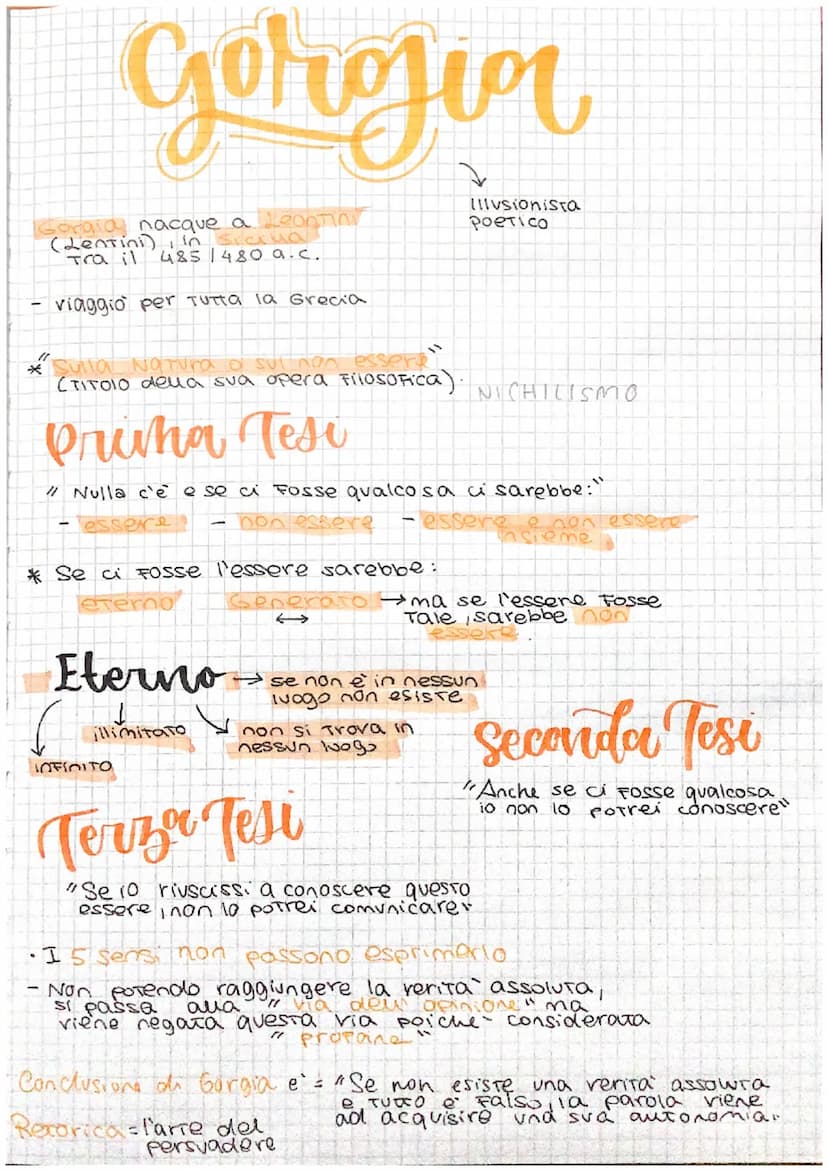 Gorgia
Illusionista
poetico
Gorgia, nacque a Leontini
(Lentini), in Sicilia
tra il 485/480 a.C.
- viaggiò per tutta la Grecia
* "Sulla Natura o sul non essere"
(titolo della sua opera filosofica).
NICHILISMO
Prima Tesi
"Nulla c'è e se ci fosse qualcosa ci sarebbe:"
- essere - non essere - essere e non essere
insieme
* Se ci fosse l'essere sarebbe:
eterno Generato → ma se l'essere fosse
↔ tale, sarebbe non
essere.
Eterno → se non è in nessun
luogo non esiste
illimitato non si trova in
nessun luogo
infinito
Seconda Tesi
"Anche se ci fosse qualcosa
io non lo potrei conoscere"
Terza Tesi
"Se io riuscissi a conoscere questo
essere, non lo potrei comunicare"
· I 5 sensi non possono esprimerlo
- Non potendo raggiungere la verità assoluta,
si passa alla "via dell'opinione" ma
viene negata questa via poichè considerata
"profana"
Conclusione di Gorgia è = "Se non esiste una verità assoluta
e tutto è falso, la parola viene
ad acquisire una sua autonomia"
Retorica = l'arte del
persuadere